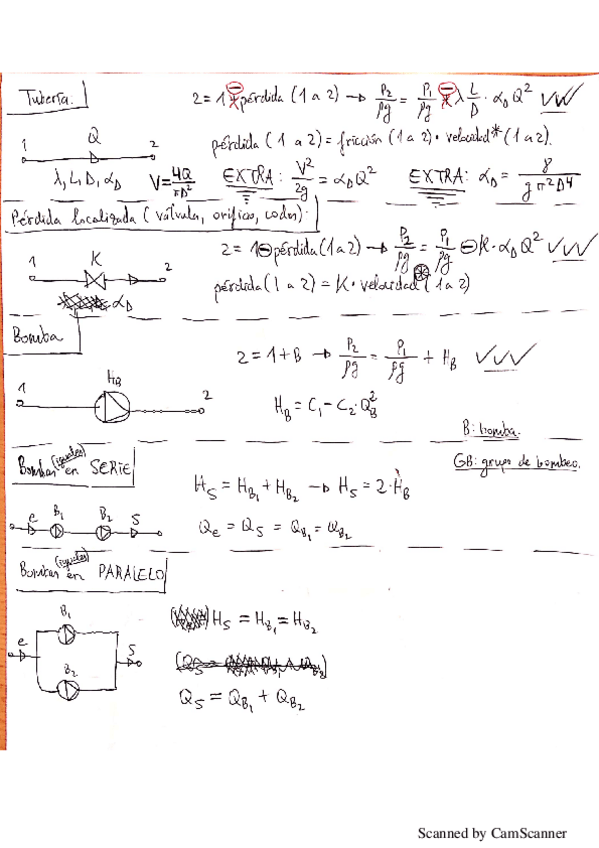 Tubería.
2 = 1 ⊖ pérdida (1 a 2) → P2/ρg = P1/ρg ⊖ λ L/D · αD Q² ✓✓✓
pérdida (1 a 2) = fricción (1 a 2) · velocidad* (1 a 2).
1 Q 2
λ, L, D, αD V = 4Q/πD² EXTRA: V²/2g = αD Q² EXTRA: αD = 8/gπ²D⁴
Pérdida localizada (válvula, orificio, codo):
2 = 1 ⊖ pérdida (1 a 2) → P2/ρg = P1/ρg ⊖ K · αD Q² ✓✓✓
1 K 2
pérdida (1 a 2) = K · velocidad* (1 a 2)
αD
Bomba
2 = 1 + B → P2/ρg = P1/ρg + HB ✓✓✓
1 HB 2
HB = C1 - C2 · QB²
B: bomba.
GB: grupo de bombeo.
Bombas (iguales) en SERIE
HS = HB1 + HB2 → HS = 2 · HB
e B1 B2 S
Qe = QS = QB1 = QB2
Bombas (iguales) en PARALELO
B1
HS = HB1 = HB2
e S
B2
QS = QB1 + QB2
Scanned by CamScanner